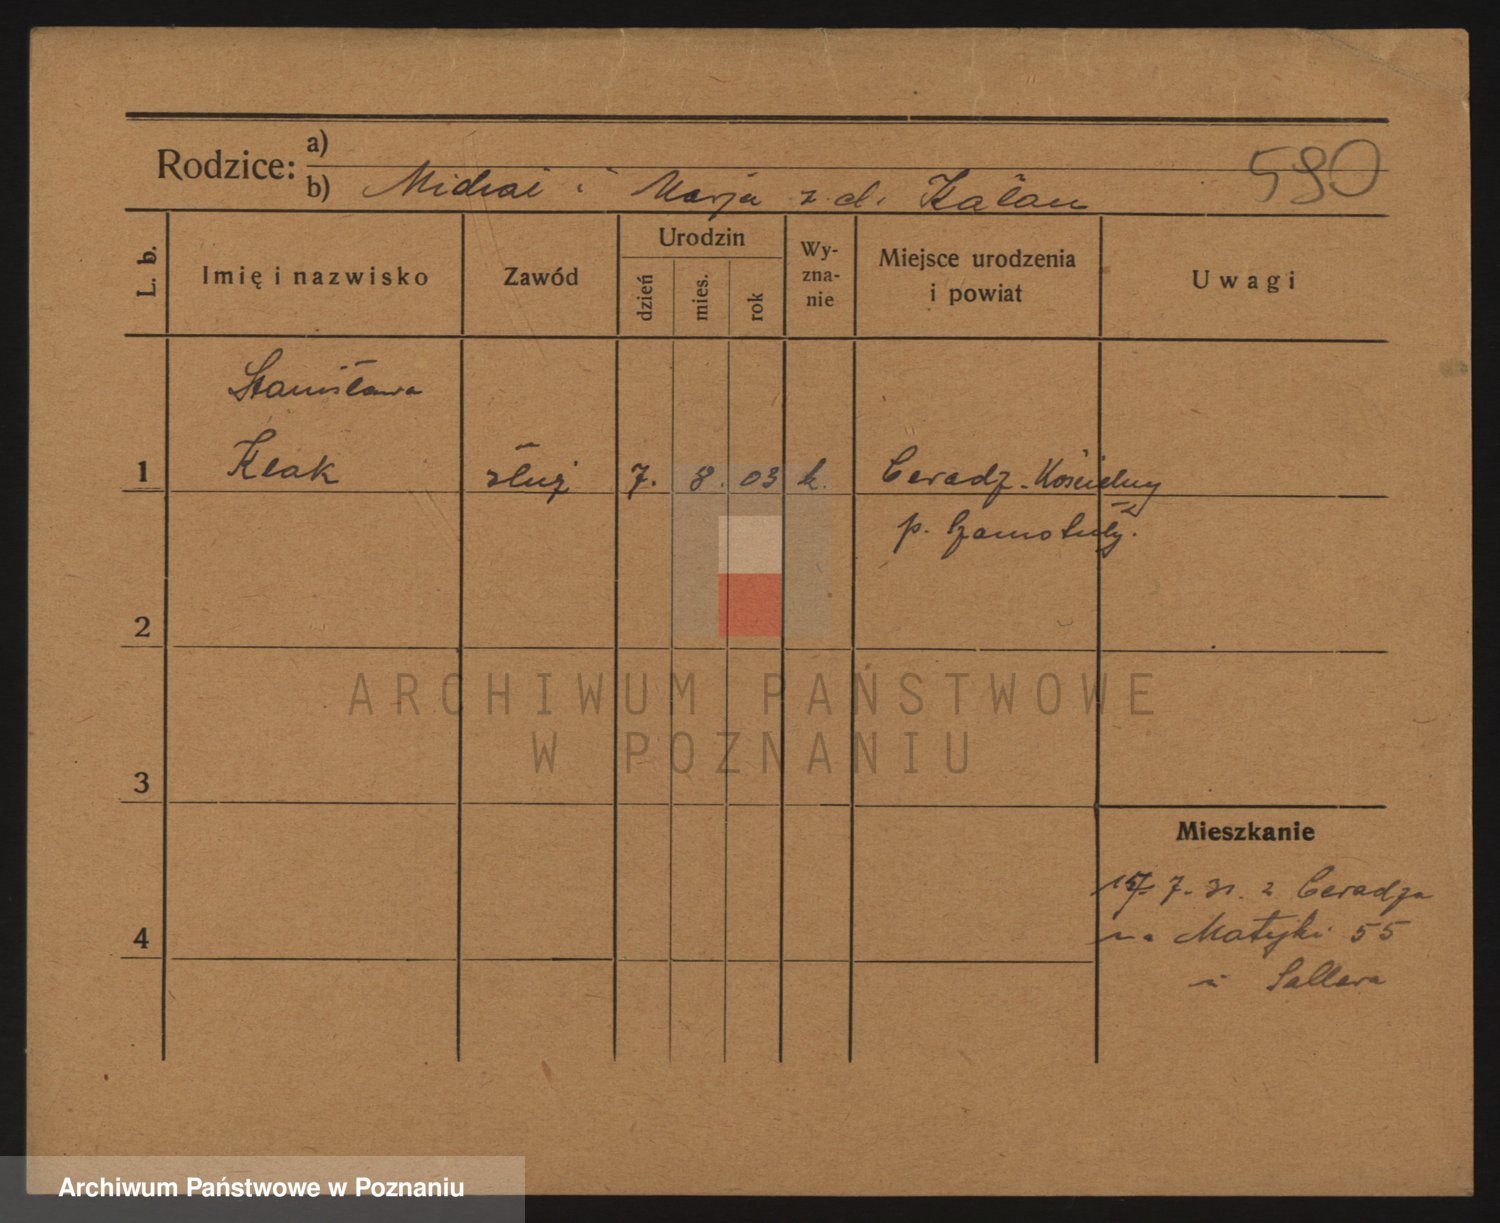 Rodzice: a)
b) Michał i Marja z d. Kałan
590
L. b.
Imię i nazwisko
Zawód
Urodzin
dzień
mies.
rok
Wy-
zna-
nie
Miejsce urodzenia
i powiat
Uwagi
Stanisława
1 Klak służ 7. 8. 03 k. Ceradz-Kościelny
p. Szamotuły.
2
ARCHIWUM PAŃSTWOWE
W POZNANIU
3
Mieszkanie
15. 7. 31. z Ceradza
4
na Matejki 55
u
Archiwum Państwowe w Poznaniu